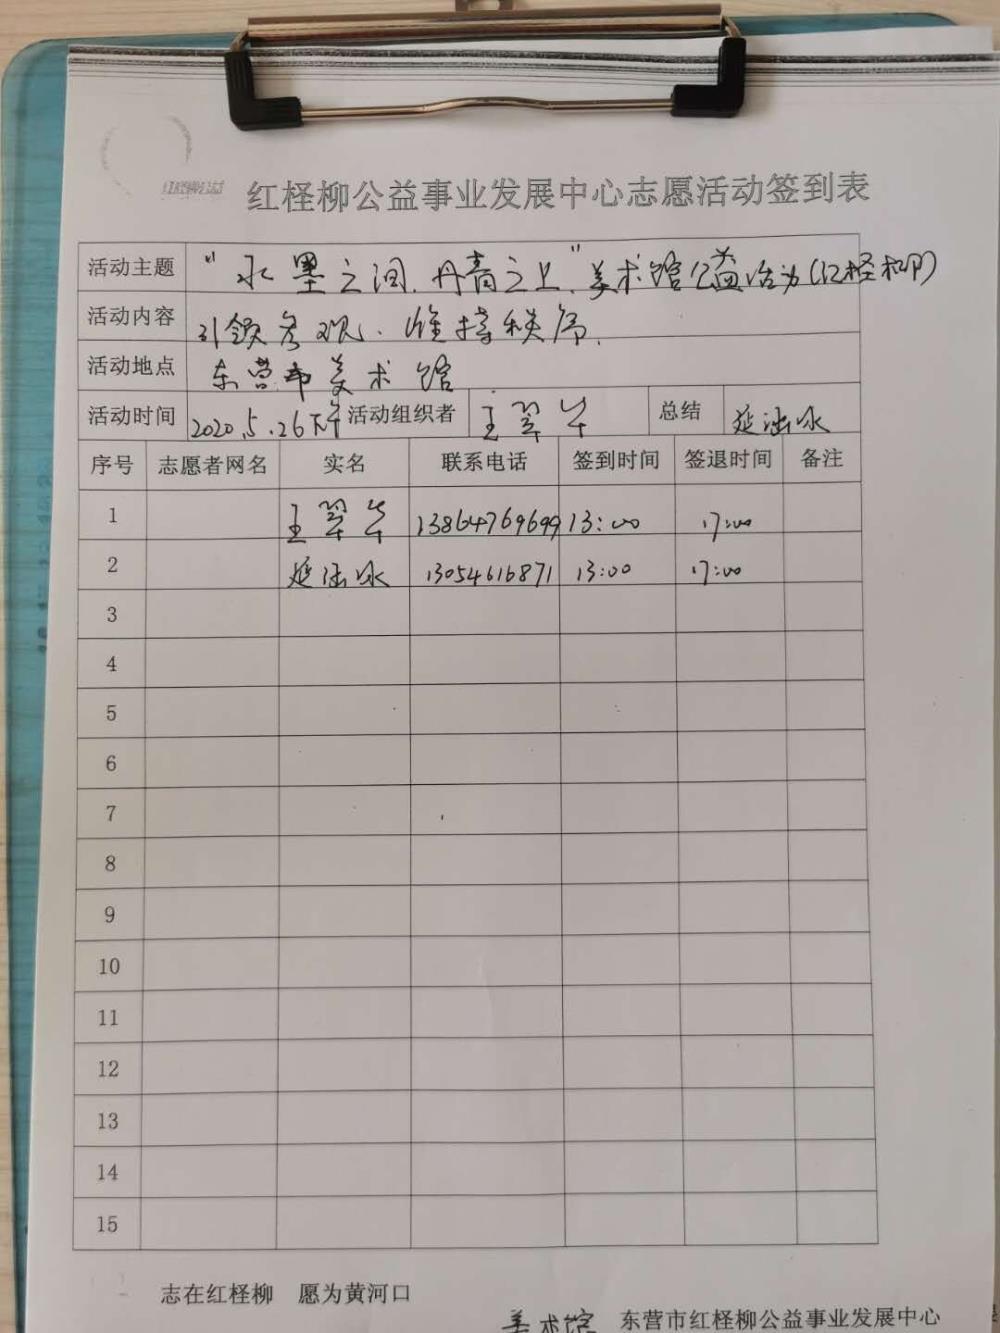 红柽柳公益
红柽柳公益事业发展中心志愿活动签到表
活动主题 “水墨之间.丹青之上”美术馆公益活动(红柽柳)
活动内容 引领参观.维持秩序.
活动地点 东营市美术馆
活动时间 2020.5.26下午 活动组织者 王翠华 总结 延
序号 志愿者网名 实名 联系电话 签到时间 签退时间 备注
1 王翠华 13864769699 13:00 17:00
2 延 13054616871 13:00 17:00
3
4
5
6
7
8
9
10
11
12
13
14
15
志在红柽柳 愿为黄河口
美术馆 东营市红柽柳公益事业发展中心